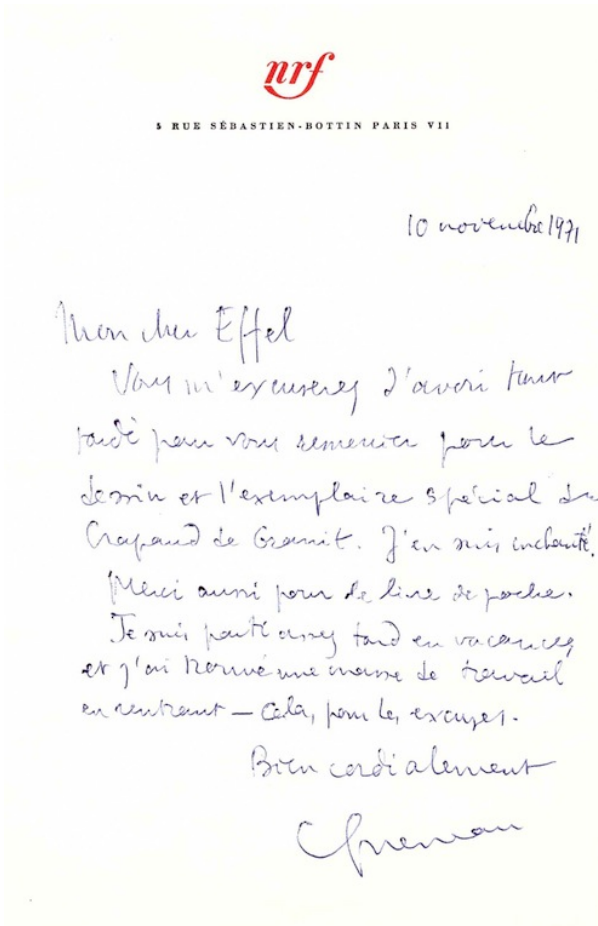 nrf
5 RUE SÉBASTIEN-BOTTIN PARIS VII
10 novembre 1971
Mon cher Effel
Vous m'excuserez d'avoir tant
tardé pour vous remercier pour le
dessin et l'exemplaire spécial du
Crapaud de Granit. J'en suis enchanté.
Merci aussi pour le livre de poche.
Je suis parti assez tard en vacances
et j'ai trouvé une masse de travail
en rentrant — Cela, pour les excuses.
Bien cordialement
Queneau